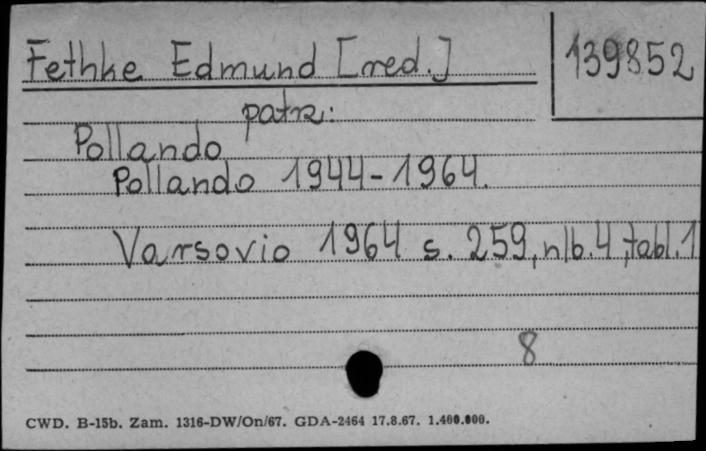 Fethke Edmund [red.]
139852
patrz:
Pollando
Pollando 1944-1964.
Varsovio 1964 s. 259, nlb. 4, tabl. 1
8
CWD. B-15b. Zam. 1316-DW/On/67. GDA-2464 17.8.67. 1.400.000.